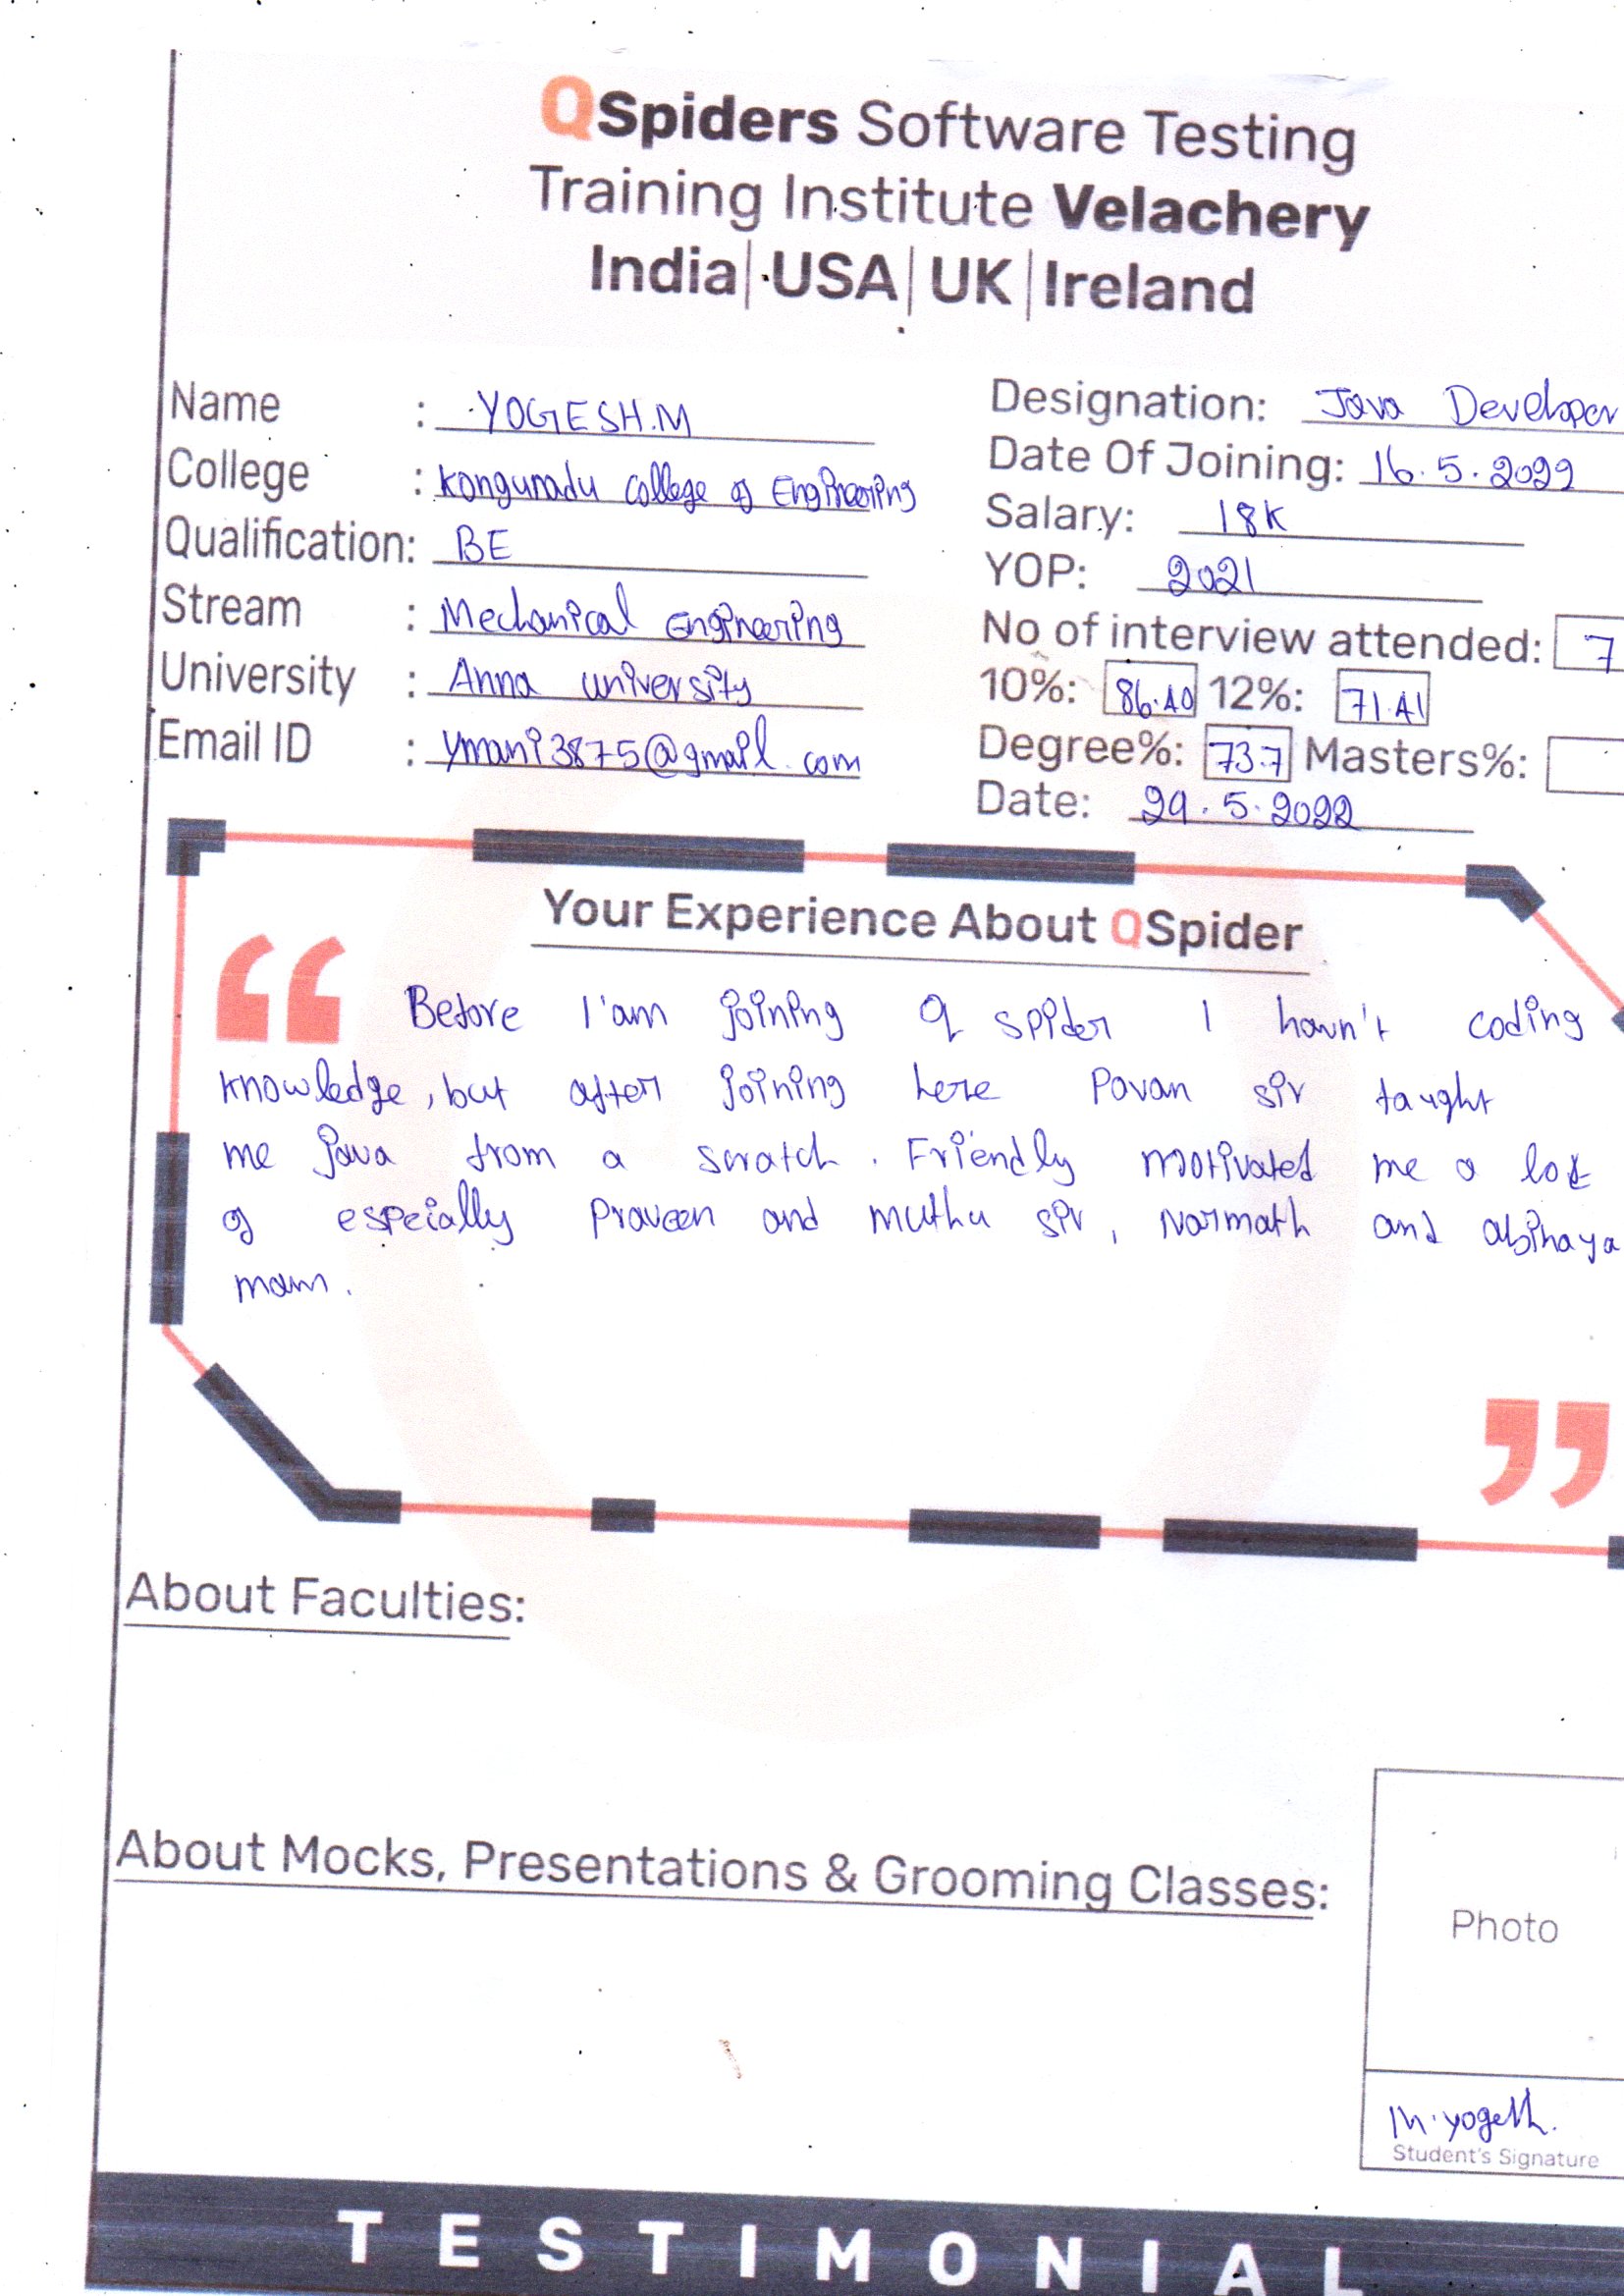 QSpiders Software Testing
Training Institute Velachery
India| USA| UK |Ireland
Name : YOGESH.M
College : Kongunadu College of Engineering
Qualification: BE
Stream : Mechanical Engineering
University : Anna University
Email ID : ymani3875@gmail.com
Designation: Java Developer
Date Of Joining: 16.5.2022
Salary: 18K
YOP: 2021
No of interview attended: 7
10%: 86.40 12%: 71.41
Degree%: 73.7 Masters%:
Date: 29.5.2022
Your Experience About QSpider
“ Before I'am joining Q spider I havn't coding
knowledge, but after joining here Pavan sir taught
me java from a scratch. Friendly motivated me a lot
of especially Praveen and Muthu sir, Narmath and abinaya
mam.
”
About Faculties:
About Mocks, Presentations & Grooming Classes:
Photo
M.yogesh.
Student's Signature
TESTIMONIAL